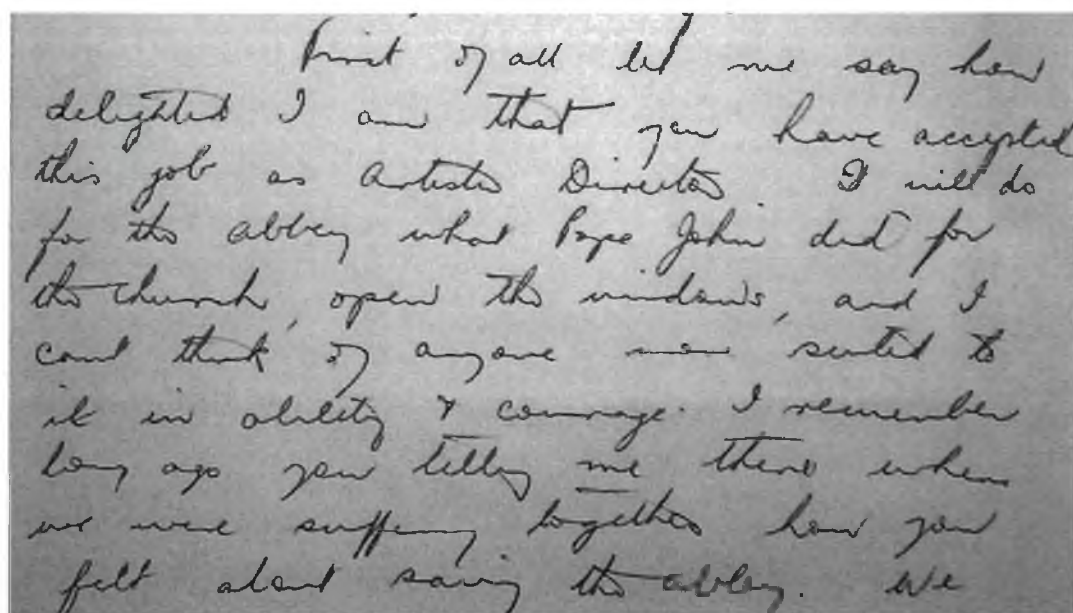 First of all let me say how
delighted I am that you have accepted
this job as Artistic Director. It will do
for the Abbey what Pope John did for
the Church, open the windows, and I
cant think of anyone more suited to
it in ability & courage. I remember
long ago you telling me there when
we were suffering together how you
felt about saving the Abbey. We